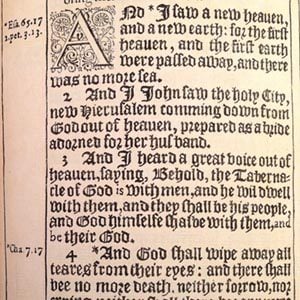 *Esa. 65.17
2. pet. 3.13.
AND *I saw a new heauen,
and a new earth: for the first
heauen, and the first earth
were passed away, and there
was no more sea.
2 And I John saw the holy City,
new Hierusalem comming down from
God out of heauen, prepared as a bride
adorned for her husband.
3 And I heard a great voice out of
heauen, saying, Behold, the Taberna-
cle of God is with men, and he wil dwell
with them, and they shall be his people,
and God himselfe shal be with them, and
be their God.
*Cha. 7.17
4 *And God shall wipe away all
teares from their eyes: and there shall
bee no more death, neither sorrow, nor